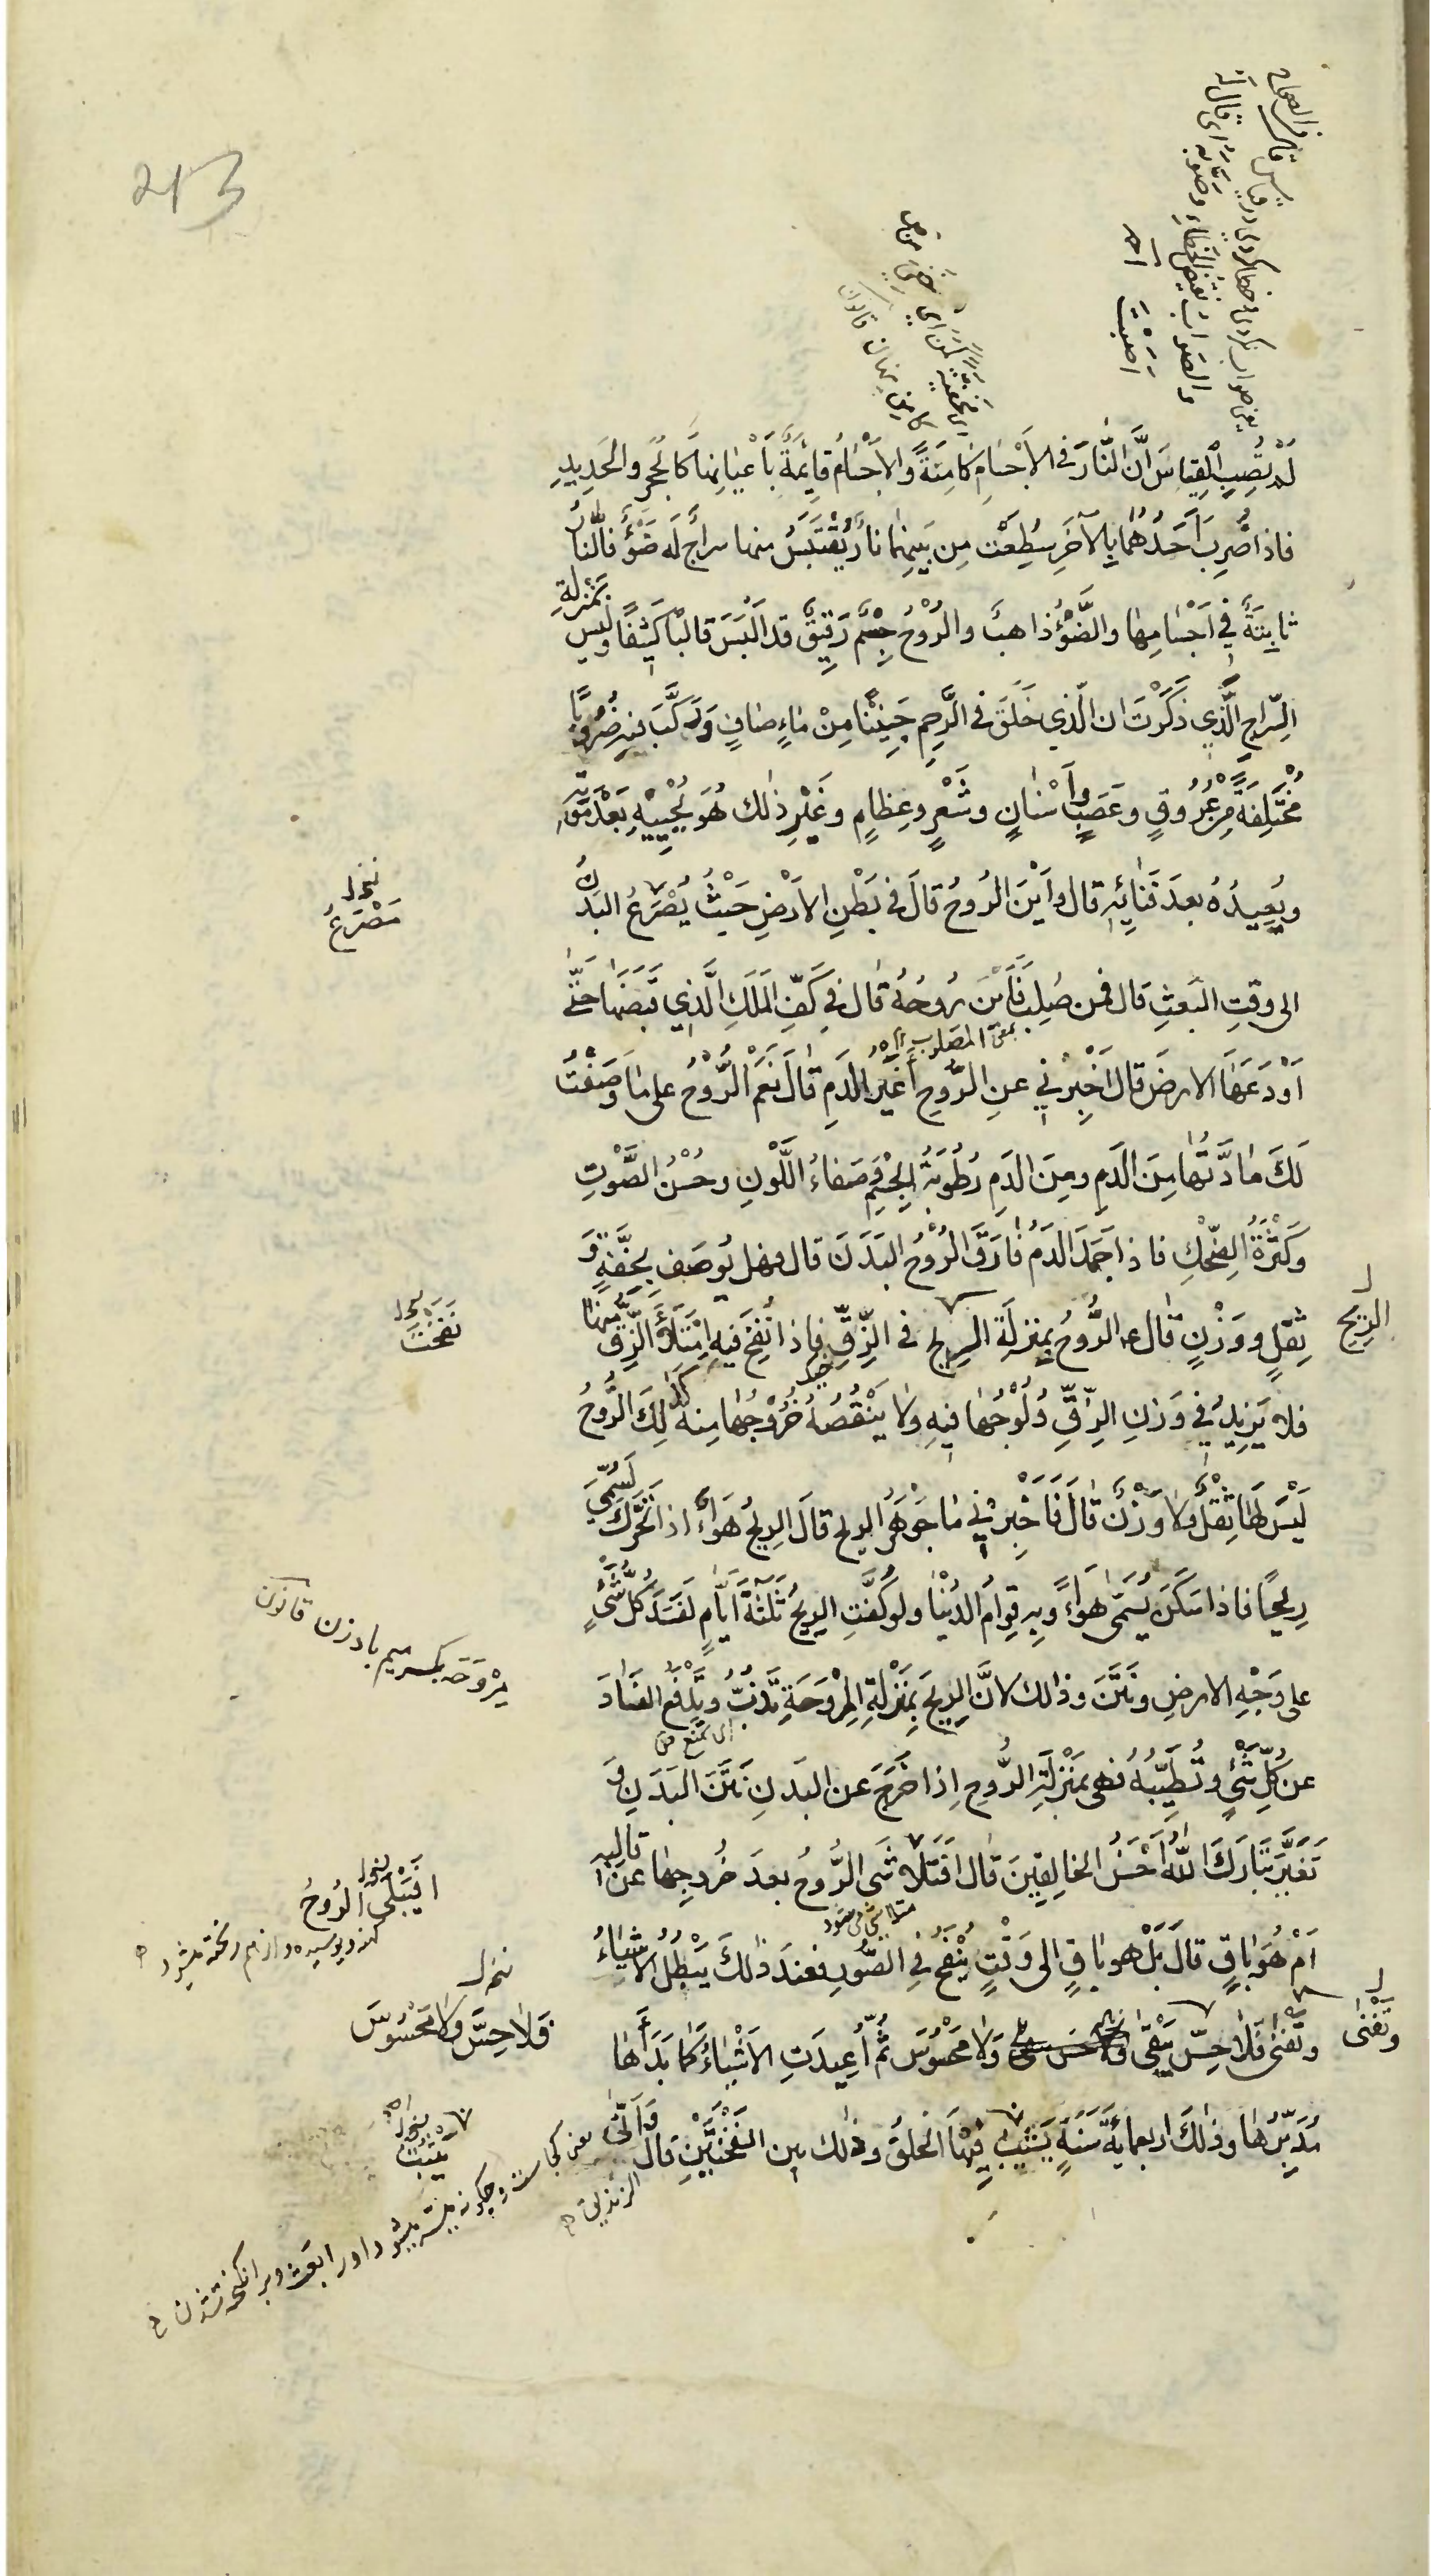 213
لَمْ تُصِبِ الْقِيَاسَ اِنَّ النَّارَ فی الاَجْسَامِ كَامِنَةٌ وَالاَجْسَامُ قَائِمَةٌ بِاَعْيَانِهَا كَالْحَجَرِ وَالْحَدِيدِ
فاذا ضُرِبَ اَحَدُهُمَا بِالآخَرِ سُطِعَتْ مِن بَيْنِهِمَا نارٌ يُقْتَبَسُ منها سراجٌ لَه ضَوْءٌ فالنّارُ
ثابِتَةٌ فی اَجْسَامِهَا والضَّوْءُ ذاهبٌ والرُّوْحُ جِسْمٌ رَقِيقٌ قد اُلْبِسَ قالَبًا كَثِيفًا وليس بمَنْزِلَةِ
السِّراجِ الَّذِي ذَكَرْتَ ان الّذي خَلَقَ فی الرَّحِمِ جَنِيْنًا مِنْ مَاءٍ صَافٍ وَرَكَّبَ فيه ضُرُوبًا
مُخْتَلِفَةً مِنْ عُرُوقٍ وعَصَبٍ واَسْنانٍ وشَعْرٍ وعِظامٍ وغَيْرِ ذلك هُوَ يُحْيِيْهِ بَعْدَ مَوْتِه
ويُعِيدُهُ بعدَ فَنَائِهِ قال واَيْنَ الرُوحُ قالَ فی بَطْنِ الاَرْضِ حَيْثُ يُصْرَعُ البَدَنُ
الى وقتِ البَعثِ قال فمن صُلِبَ فَاَيْنَ رُوحُهُ قال فی كَفِّ المَلَكِ الَّذِي قَبَضَهَا حَتّى
اَوْدَعَهَا الارضَ قال اَخْبِرْنی عنِ الرُّوحِ اَغَيْرُ الدَمِ قالَ نَعَمْ الرُّوْحُ على ما وَصَفْتُ
لَكَ مَادَّتُها مِنَ الدَمِ ومِنَ الدَمِ رُطُوبَةُ الجِسْمِ وصَفاءُ اللَّوْنِ وحُسْنُ الصَّوْتِ
وكَثْرَةُ الضِّحْكِ فاذا جَمَدَ الدَمُ فارَقَ الرُوْحُ البَدَنَ قال فهل يُوصَفُ بِخِفَّةٍ وَ
ثِقْلٍ ووَزْنٍ قال ع الرُّوحُ بِمنزلَةِ الرِيحِ فی الزِّقِّ فاذا نُفِخَ فيهِ اِمْتَلَأَ الزِّقُّ منها
فلا يَزِيدُ فی وَزنِ الزِّقِّ وُلُوْجُها فيهِ ولا يَنْقُصُهُ خُرُوْجُهَا مِنهُ كَذلِكَ الرُّوحُ
لَيْسَ لَهَا ثِقْلٌ ولا وَزْنٌ قالَ فَاَخْبِرْنی مَا جَوْهَرُ الريح قالَ الرِيحُ هَوَاءٌ اذا تَحَرَّكَ يُسَمّى
رِيْحًا فاذا سَكَنَ يُسَمّى هَوَاءً وبِهِ قِوامُ الدُنْيا ولو كُفَّتِ الرِيحُ ثَلثَةَ اَيَّامٍ لَفَسَدَ كُلُّ شَیْءٍ
على وَجْهِ الارضِ ونَتَنَ وذالك لاَنَّ الرِيحَ بِمَنْزِلَةِ المِرْوَحَةِ تَذُبُّ وتَدْفَعُ الفَسَادَ
عن كُلِّ شَیْءٍ وتُطَيِّبُهُ فهی بمَنْزِلَةِ الرُّوحِ اِذا خَرَجَ عن البدنِ نَتَنَ البَدَن وَ
تَغَيَّرَ تَبَارَكَ اللّهُ اَحْسَنُ الخالِقِينَ قال افَتَتَلاشَى الرُّوحُ بعدَ خُروجِها عن قالبه
اَمْ هُوَ بَاقٍ قالَ بَلْ هو باقٍ الى وَقْتٍ يُنْفَخُ فی الصُّورِ فعندَ ذلكَ يَبْطُلُ الاَشْيَاءُ
وتَفْنى فَلا حِسّ يَبْقى ولا مَحْسُوسَ ثُمَّ اُعِيدَتِ الاَشْيَاءُ كَمَا بَدَأَها
مُدَبِّرُها وذلكَ اربعمائَةِ سَنَةٍ يَسْبُتُ فِيْهَا الخلقُ وذلك بين النَفْخَتَيْنِ قال وَاَنّى
الزنديق
الرِيْح
وتَفْنى
مَصْرَعُ
نَفَخْتَ
مِرْوَحَه بكسر ميم بادزن قانون
اَفَيَبْلَى الرُوحُ
كهنه وپوسیده واز هم ریخته میشود
فَلا حِسَّ ولا مَحْسُوسَ
متلاشی میشود